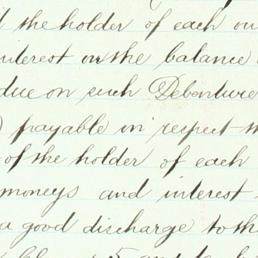 the holder of each
interest on the balance
due on such Debenture
) payable in respect th
of the holder of each
moneys and interest
a good discharge to th